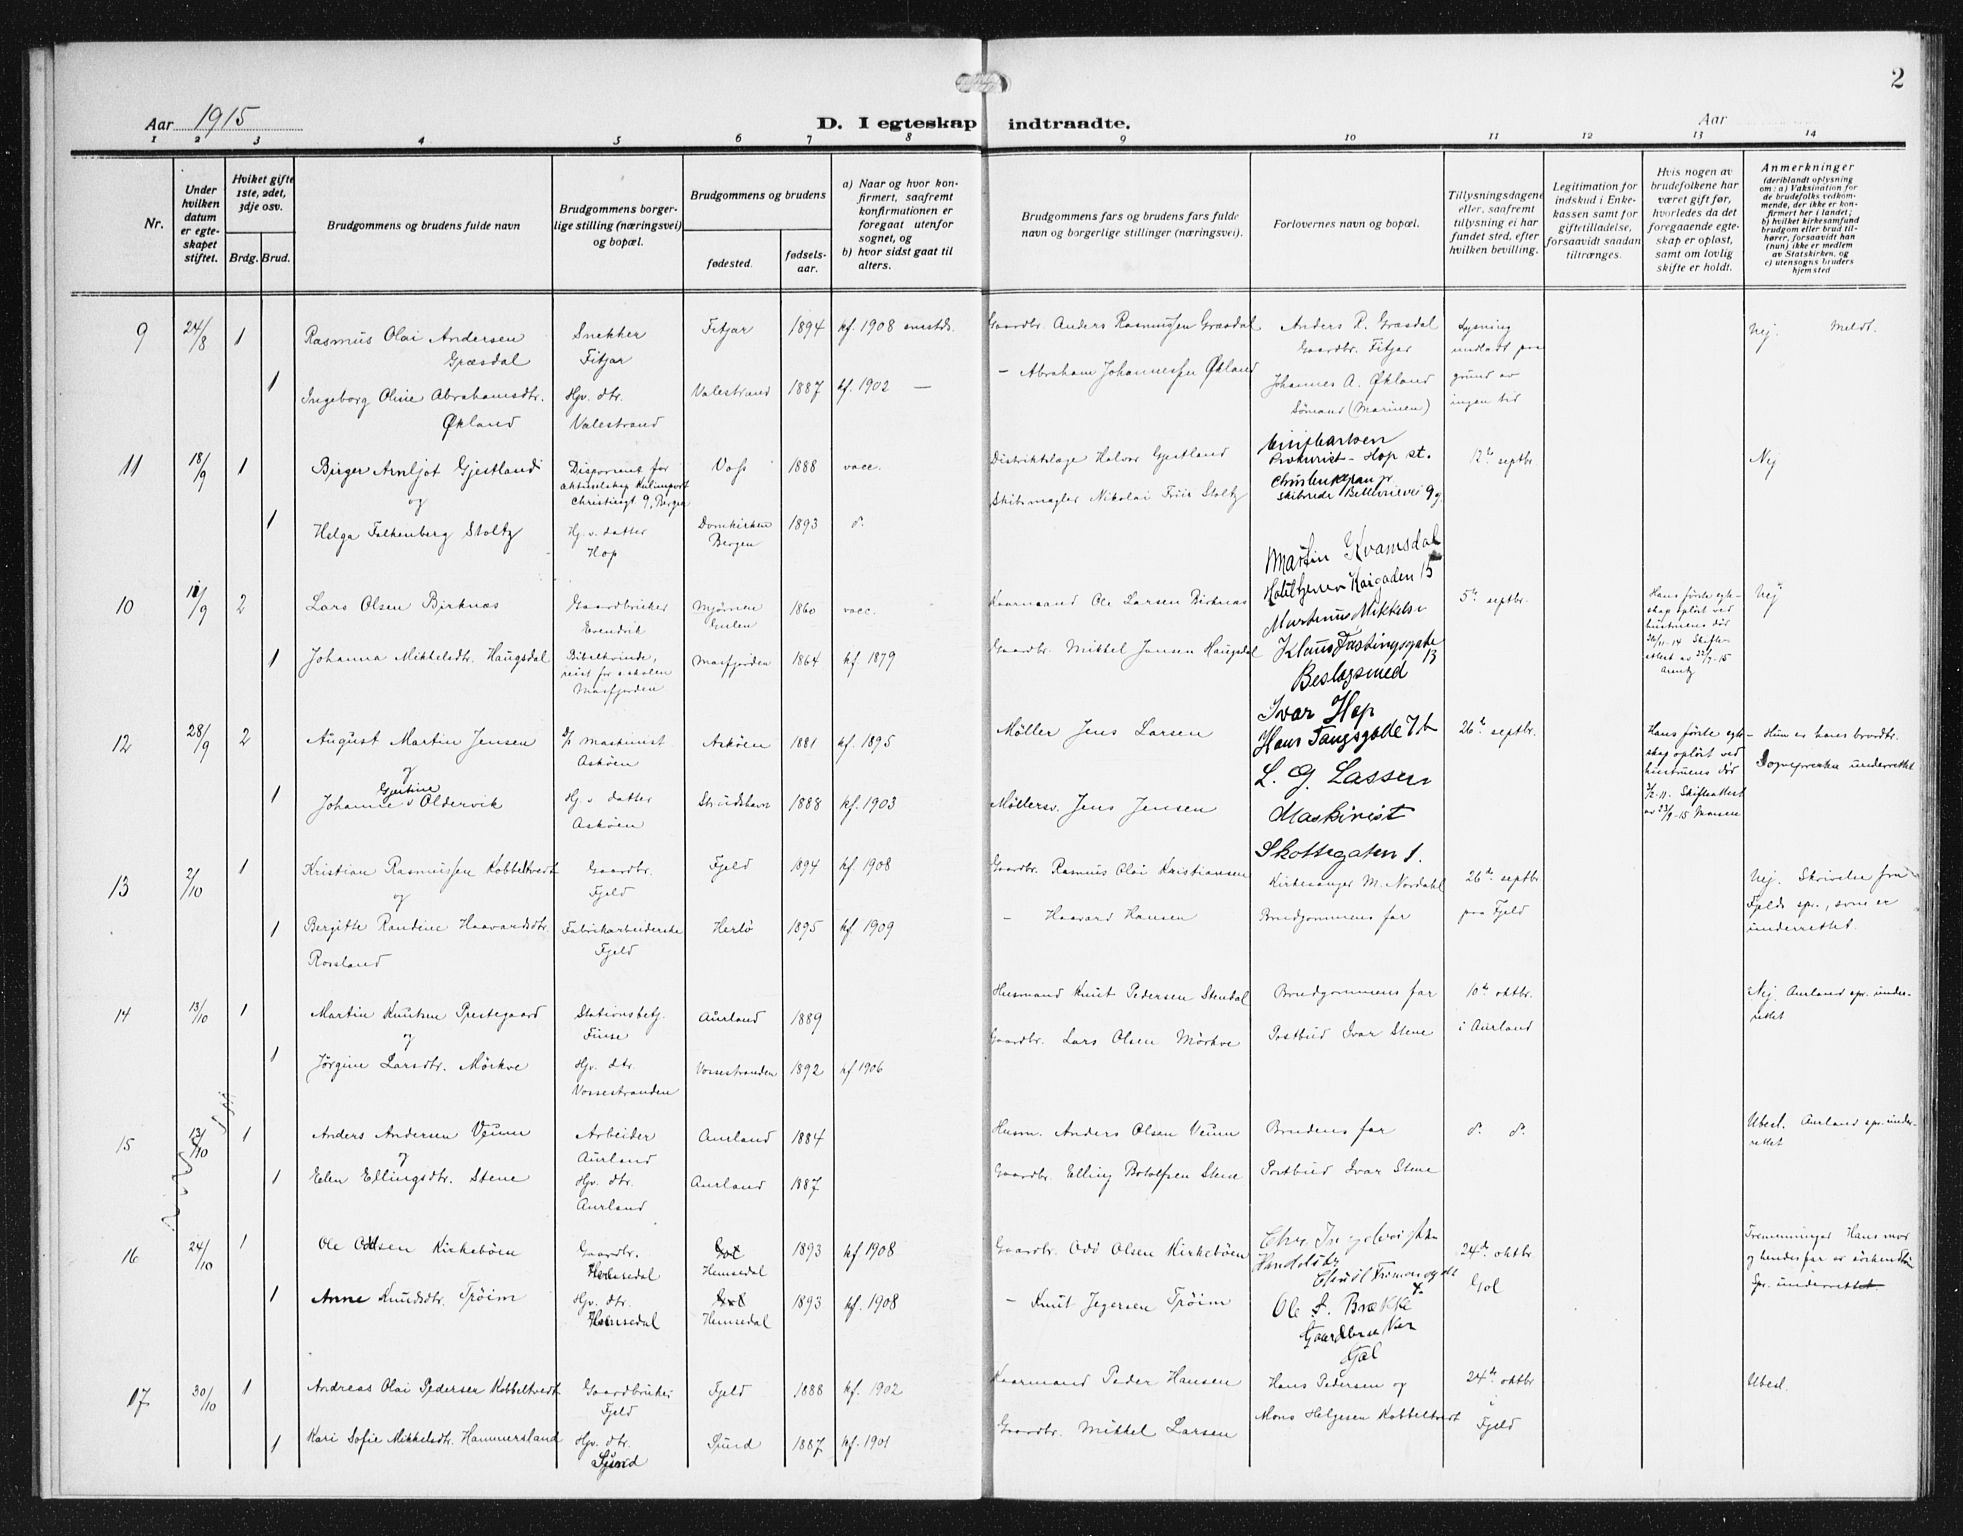 2
Aar 1915
D. I egteskap indtraadte.
Aar
1 2 3 4 5 6 7 8 9 10 11 12 13 14
Nr.
Under hvilken datum er egteskapet stiftet.
Hvilket gifte 1ste, 2det, 3dje osv.
Brdg. Brud.
Brudgommens og brudens fulde navn
Brudgommens borgerlige stilling (næringsvei) og bopæl.
Brudgommens og brudens
fødested.
fødselsaar.
a) Naar og hvor konfirmert, saafremt konfirmationen er foregaat utenfor sognet, og
b) hvor sidst gaat til alters.
Brudgommens fars og brudens fars fulde navn og borgerlige stillinger (næringsvei).
Forlovernes navn og bopæl.
Tillysningsdagene eller, saafremt tillysning ei har fundet sted, efter hvilken bevilling.
Legitimation for indskud i Enkekassen samt for giftetilladelse, forsaavidt saadan tiltrænges.
Hvis nogen av brudefolkene har været gift før, hvorledes da det foregaaende egteskap er opløst, samt om lovlig skifte er holdt.
Anmerkninger
(deriblandt oplysning om: a) Vaksination for de brudefolks vedkommende, der ikke er konfirmert her i landet; b) hvilket kirkesamfund brudgom eller brud tilhører, forsaavidt han (hun) ikke er medlem av Statskirken, og c) utensogns bruders hjemsted
9 24/8 1 Rasmus Olai Andersen Græsdal Snekker Fitjar Fitjar 1894 kf. 1908 Gaardbr. Anders Rasmussen Græsdal Anders R. Græsdal Gaardbr. Fitjar Lysning undladt paa grund av ingen tid Nej. Meldt.
1 Ingeborg Oline Abrahamsdtr. Økland Hjv. dtr. Valestrand Valestrand 1887 kf. 1902 — – Abraham Johannessen Økland Johannes A. Økland Sømand (Marinen)
11 18/9 1 Birger Arnljot Gjestland og Disponent for Christiesgt 9, Bergen Voss 1888 vacc. Distriktslæge Halvor Gjestland Prokurist – Hop st. 12te septbr. Nej
1 Helga Falkenberg Stoltz Hj. v. datter Hop Domkirken Bergen 1893 d. Skibsmægler Nikolai Friis Stoltz
10 18/9 2 Lars Olsen Birknæs Gaardbruker Evendvik Gulen 1860 vacc. Kaarmand Ole Larsen Birknæs Martin Kvamsdal Kaigaden 15 5te septbr. Hans første egteskap opløst ved hustruens død Nej
1 Johanna Mikkelsdtr. Haugsdal Bibelkvinde, Masfjorden Masfjorden 1864 kf 1879 Gaardbr. Mikkel Jansen Haugsdal Beslagsmed
12 28/9 2 August Martin Jensen og Maskinist Askøen Askøen 1881 kf. 1895 Møller Jens Larsen Ivar Hop Hans Tangsgade 7b 26te septbr. Hans første egteskap opløst ved hustruens død 3/2-11. Skifteattest av 23/9-15 – Hun er hans brordtr. Sognepresten underrettet
1 Johanne Gjertine Oldervik Hj v datter Askøen Strudshavn 1888 kf. 1903 Møllersv. Jens Jensen L. G. Lassen Maskinist Skottegaten 1.
13 2/10 1 Kristian Rasmussen Kobbeltvedt og Gaardbr. Fjeld Fjeld 1894 kf 1908 Gaardbr. Rasmus Olai Kristiansen Kirkesanger M. Nordahl 26te septbr paa Fjeld Nej. Skrivelse fra Fjelds spr., som er underrettet.
1 Bergitte Randine Haavardsdtr. Rossland Fabrikarbeiderske Fjeld Herlö 1895 kf 1909 – Haavard Hansen Brudgommens far
14 13/10 1 Martin Knutsen Prestegaard og Stationsbetj. Finse Aurland 1889 Husmand Knut Pedersen Stendal Brudgommens far 10de oktbr. i Aurland Nej. Aurland spr. underrettet
1 Jørgine Larsdtr. Mörkve Hjv. dtr. Vossestranden Vossestranden 1892 kf 1906 Gaardbr. Lars Olsen Mörkve Postbud Ivar Stene
15 13/10 1 Anders Andersen Veum og Arbeider Aurland Aurland 1884 Husm. Anders Olsen Veum Brudens far d. d. Ubesl. Aurland spr. underrettet
1 Elen Ellingsdtr. Stene Hjv. dtr. Aurland Aurland 1887 Gaardbr. Elling Botolfsen Stene Postbud Ivar Stene
16 24/10 1 Ole Oddsen Kirkebøen Gaardbr. Hemsedal Gol Hemsedal 1893 kf 1908 Gaardbr. Odd Olsen Kirkebøen 24de oktbr Gol Tremenninger Hans mor og hendes far er søskendbn Spr. underrettet.
1 Anne Knudsdtr. Trøim Hjv. dtr. Hemsedal Gol Hemsedal 1893 kf. 1908 – Knut Jegersen Trøim Ole S. Brække Gaardbruker Gol
17 30/10 1 Andreas Olai Pedersen Kobbeltvedt Gaardbruker Fjeld Fjeld 1888 kf. 1902 Kaarmand Peder Hansen Hans Pedersen og 24de oktbr i Fjeld Ubesl.
1 Kari Sofie Mikkelsdtr. Hammersland Hjv. dtr. Sund Sund 1887 kf. 1901 Gaardbr. Mikkel Larsen Mons Helgesen Kobbeltvedt